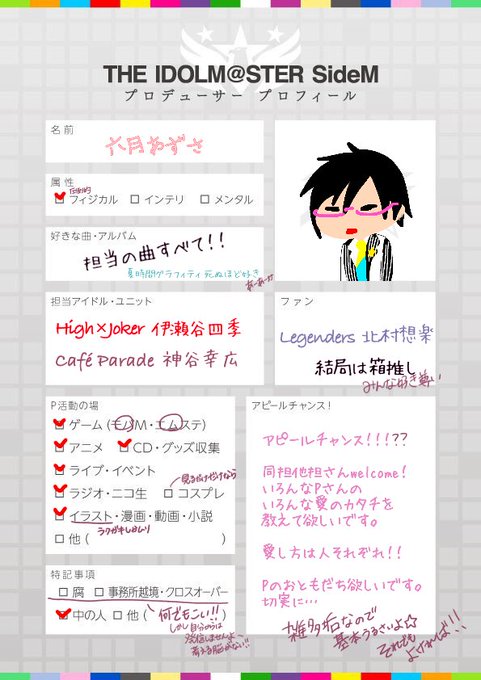 THE IDOLM@STER SideM
プロデューサー プロフィール
名前
六月あずさ
属性
圧倒的
フィジカル インテリ メンタル
好きな曲・アルバム
担当の曲すべて!!
夏時間グラフィティ死ぬほど好き
あーあーっ
担当アイドル・ユニット
High×Joker 伊瀬谷四季
Café Parade 神谷幸広
ファン
Legenders 北村想楽
結局は箱推し
みんな好き尊い
P活動の場
ゲーム(モバM・エムステ)
アニメ CD・グッズ収集
ライブ・イベント
見るだけだけなら
ラジオ・ニコ生 コスプレ
イラスト・漫画・動画・小説
ラクガキしかムリ
他( )
特記事項
腐 事務所越境・クロスオーバー
中の人 他( )
何でもこい!!
しかし自分のうちは
発信しませんよ
アピールチャンス!
アピールチャンス!!!??
同担他担さんwelcome!
いろんなPさんの
いろんな愛のカタチを
教えて欲しいです。
愛し方は人それぞれ!!
Pのおともだち欲しいです。
切実に…
雑多垢なので
基本うるさいよ☆
それでも
よければ!!